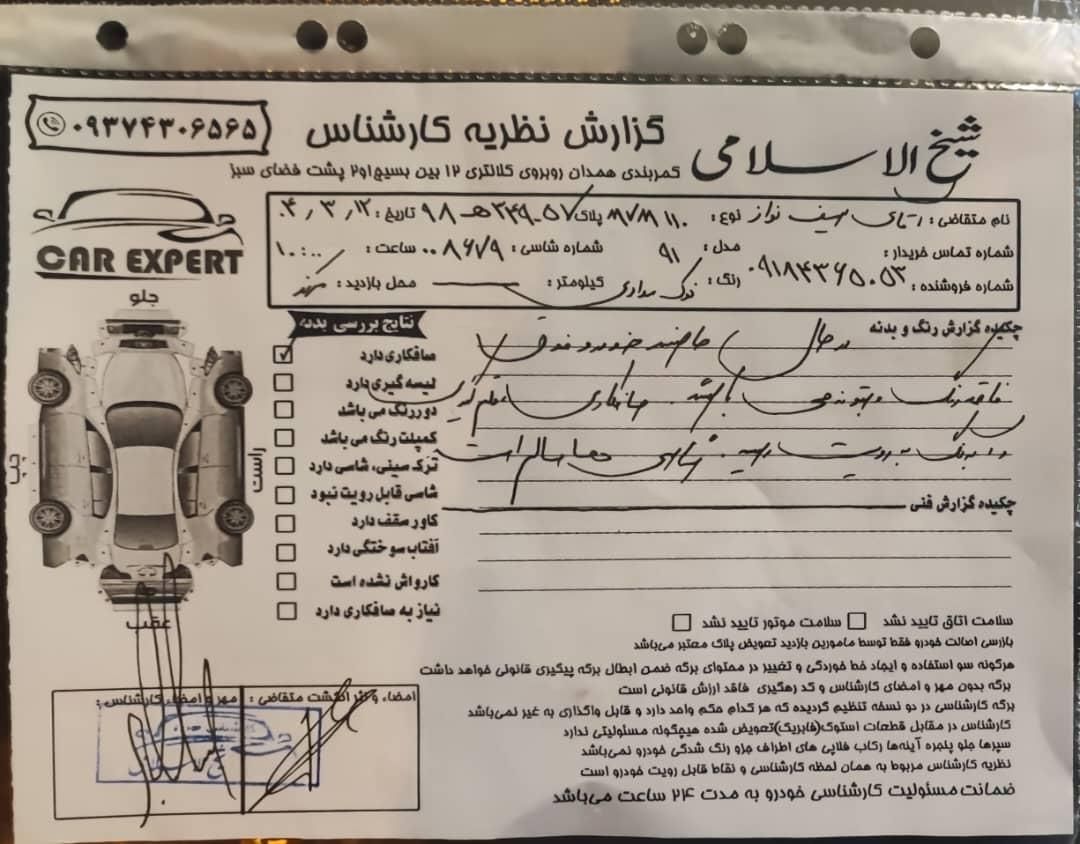 شیخ الاسلامی
گزارش نظریه کارشناس
۰۹۳۷۴۳۰۶۵۶۵
کمربندی همدان روبروی کلانتری ۱۲ بین بسیج ۱و۲ پشت فضای سبز
نام متقاضی : آقای سیف نواز نوع : MVM 110 پلاک تاریخ : ۰۴/۳/۱۲
شماره تماس خریدار : مدل : ۹۱ شماره شاسی : ۰۰۸۶۷۹ ساعت : ۱۰:۰۰
شماره فروشنده : ۰۹۱۸۴۳۶۵۰۵۳ رنگ : نوک مدادی کیلومتر : محل بازدید :
CAR EXPERT
جلو
راست
چپ
عقب
نتایج بررسی بدنه
صافکاری دارد ✓
لیسه گیری دارد
دوررنگ می باشد
کمپلت رنگ می باشد
ترک سینی، شاسی دارد
شاسی قابل رویت نبود
کاور سقف دارد
آفتاب سوختگی دارد
کارواش نشده است
نیاز به صافکاری دارد
چکیده گزارش رنگ و بدنه در حال حاضر خودرو فوق
فاقد رنگ و بتونه می باشد. صافکاری
رویت شاسی ها سالم است
چکیده گزارش فنی
سلامت اتاق تایید نشد سلامت موتور تایید نشد
بازرسی اصالت خودرو فقط توسط مامورین بازدید تعویض پلاک معتبر می‌باشد
هرگونه سو استفاده و ایجاد خط خوردگی و تغییر در محتوای برگه ضمن ابطال برگه پیگیری قانونی خواهد داشت
برگه بدون مهر و امضای کارشناس و کد رهگیری فاقد ارزش قانونی است
برگه کارشناسی در دو نسخه تنظیم گردیده که هر کدام حکم واحد دارد و قابل واگذاری به غیر نمی‌باشد
کارشناس در مقابل قطعات استوک(فابریک)تعویض شده هیچگونه مسئولیتی ندارد
سپرها جلو پنجره آینه‌ها رکاب فلاپی های اطراف جزو رنگ شدگی خودرو نمی‌باشد
نظریه کارشناس مربوط به همان لحظه کارشناسی و نقاط قابل رویت خودرو است
ضمانت مسئولیت کارشناسی خودرو به مدت ۲۴ ساعت می‌باشد
امضاء و اثر انگشت متقاضی : مهر و امضاء کارشناس :